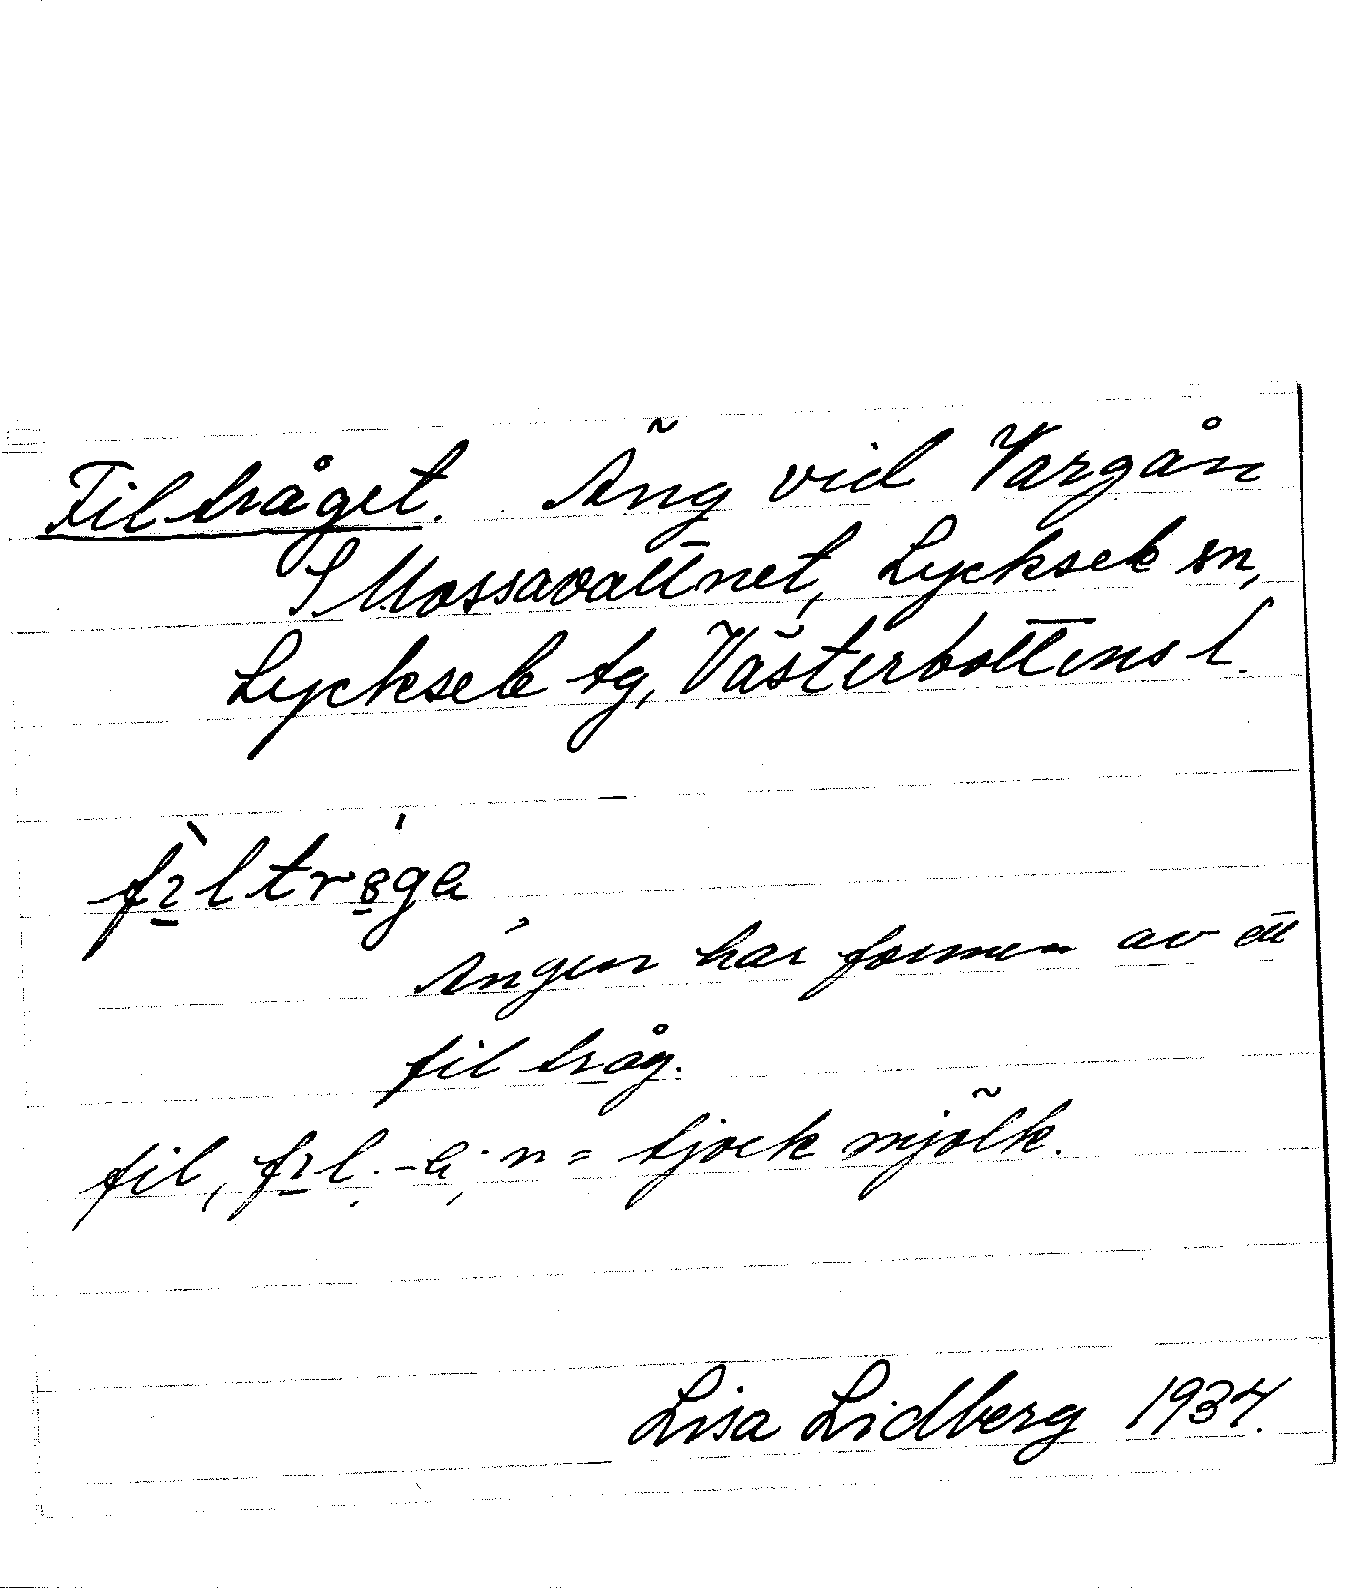 Filtråget. Äng vid Vargån
S Mossavattnet, Lycksele sn,
Lycksele tg, Västerbottens l.
fìltrǻga
Ängen har formen av ett
filtråg.
fil, fil, -a; n = tjock mjölk.
Lisa Lidberg 1934.